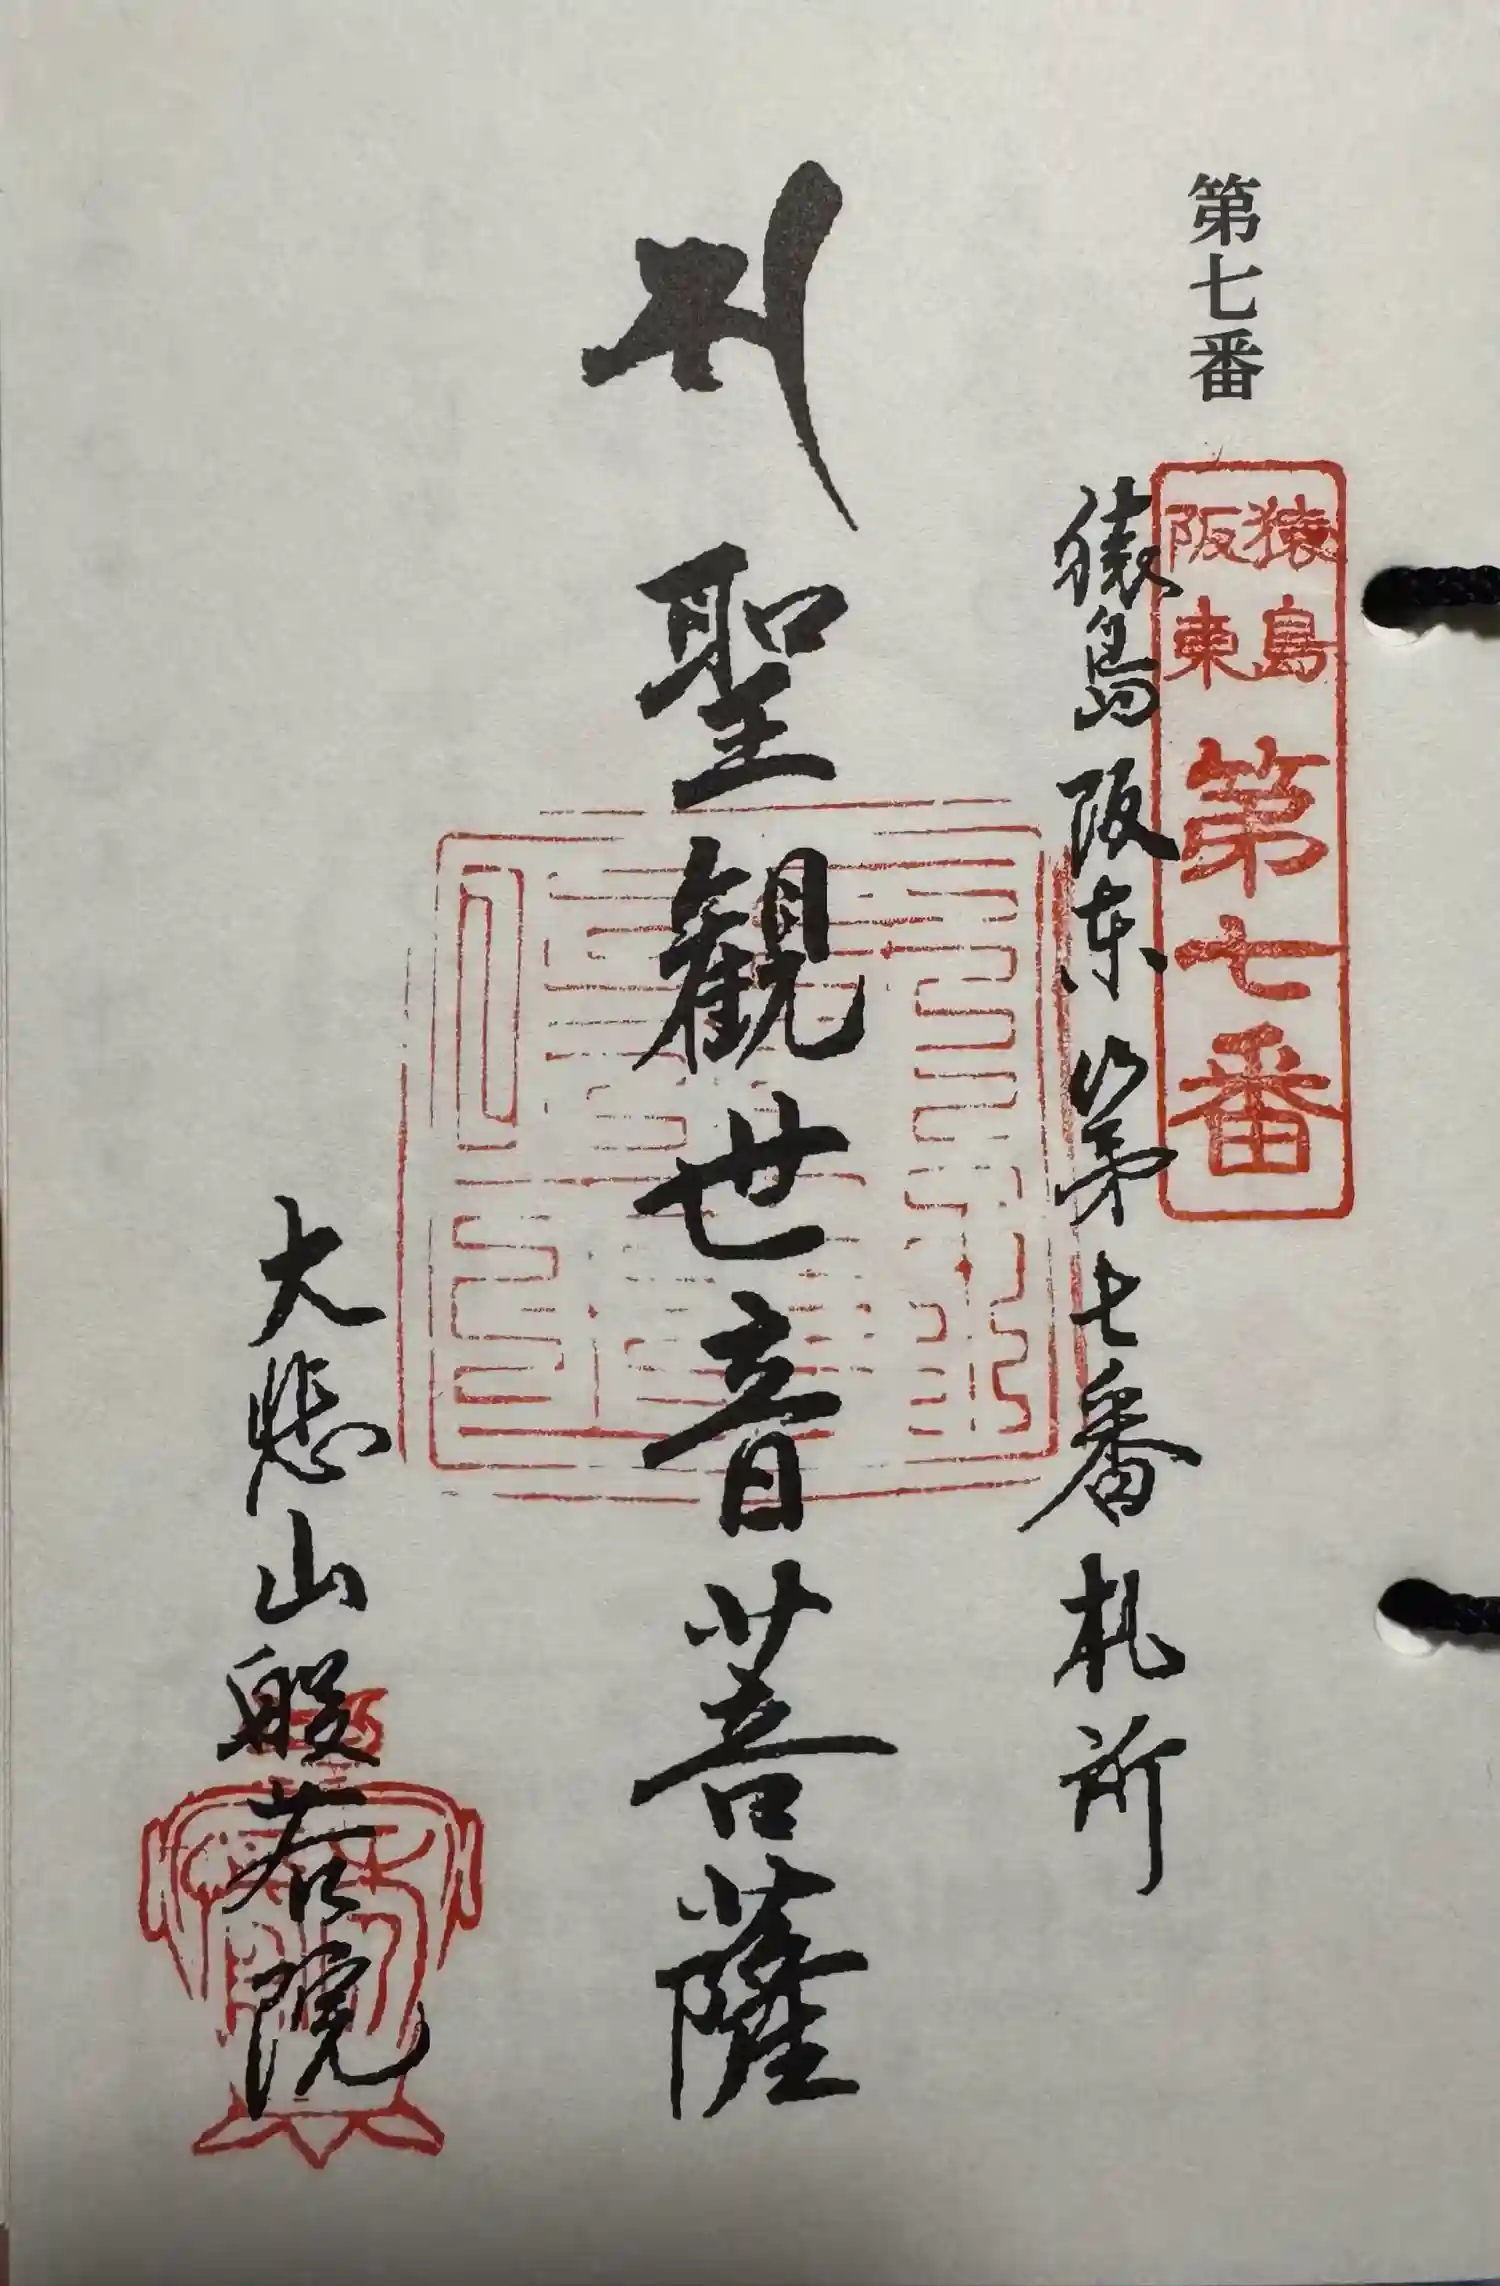 第七番
猿島
阪東
第七番
猿島阪東第七番札所
聖観世音菩薩
大悲山般若院